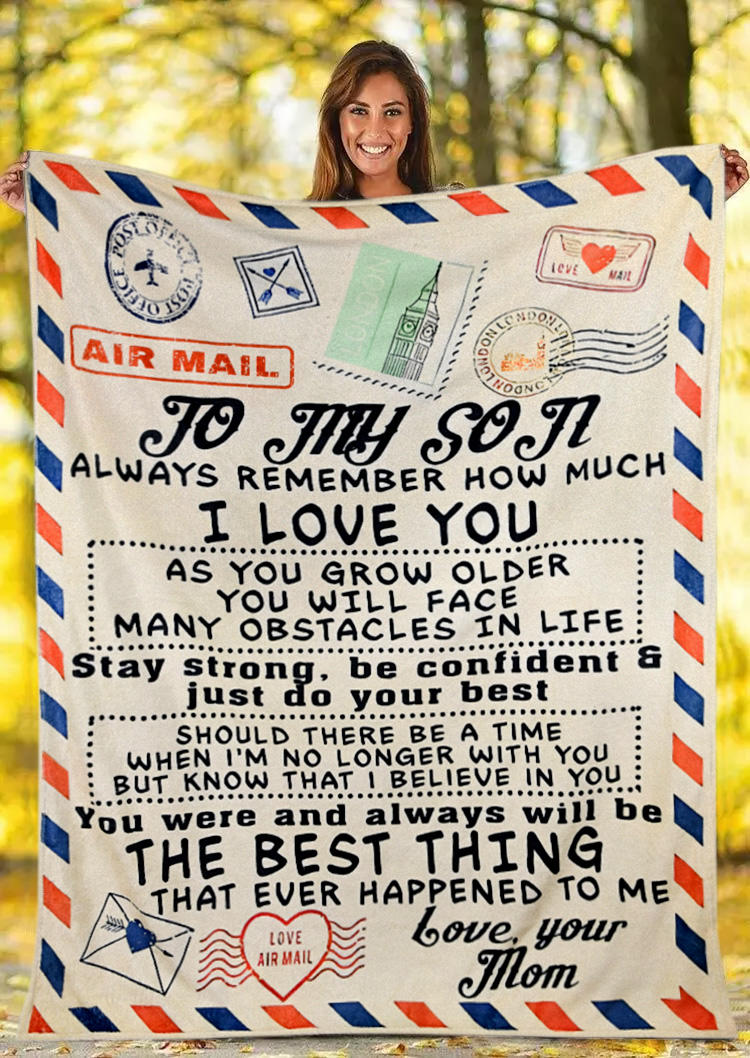 POST OFFICE POST OFFICE
LOVE MAIL
LONDON
LONDON LONDON LONDON
AIR MAIL
TO MY SON
ALWAYS REMEMBER HOW MUCH
I LOVE YOU
AS YOU GROW OLDER
YOU WILL FACE
MANY OBSTACLES IN LIFE
Stay strong, be confident &
just do your best
SHOULD THERE BE A TIME
WHEN I'M NO LONGER WITH YOU
BUT KNOW THAT I BELIEVE IN YOU
You were and always will be
THE BEST THING
THAT EVER HAPPENED TO ME
LOVE
AIR MAIL
Love, your
Mom